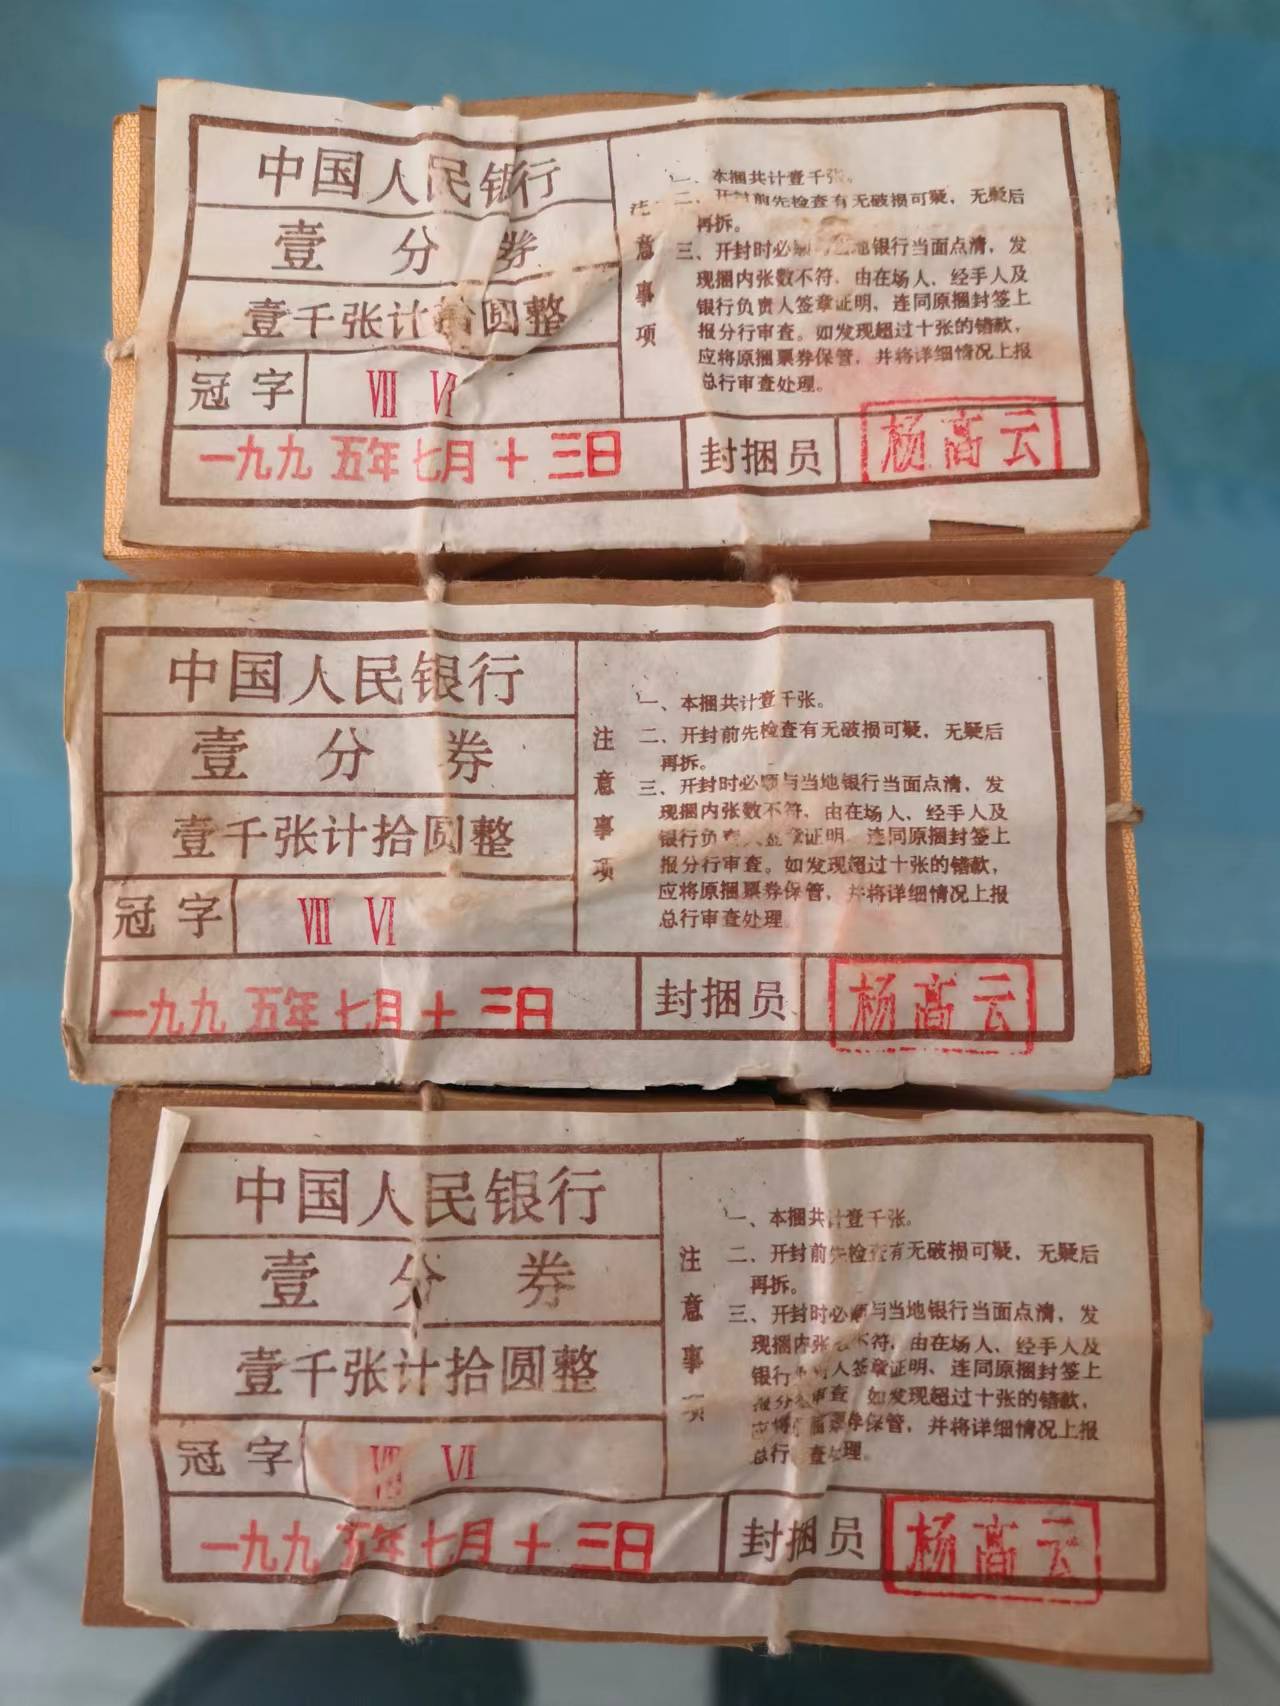 中国人民银行
壹分券
壹千张计拾圆整
冠字 Ⅷ Ⅵ
一九九五年七月十三日
注意事项
一、本捆共计壹千张。
二、开封前先检查有无破损可疑，无疑后
再拆。
三、开封时必须与当地银行当面点清，发
现捆内张数不符，由在场人、经手人及
银行负责人签章证明，连同原捆封签上
报分行审查。如发现超过十张的错款，
应将原捆票券保管，并将详细情况上报
总行审查处理。
封捆员 杨高云
中国人民银行
壹分券
壹千张计拾圆整
冠字 Ⅷ Ⅵ
一九九五年七月十三日
注意事项
一、本捆共计壹千张。
二、开封前先检查有无破损可疑，无疑后
再拆。
三、开封时必须与当地银行当面点清，发
现捆内张数不符，由在场人、经手人及
银行负责人签章证明，连同原捆封签上
报分行审查。如发现超过十张的错款，
应将原捆票券保管，并将详细情况上报
总行审查处理
封捆员 杨高云
中国人民银行
壹分券
壹千张计拾圆整
冠字 Ⅷ Ⅵ
一九九五年七月十三日
注意事项
一、本捆共计壹千张。
二、开封前先检查有无破损可疑，无疑后
再拆。
三、开封时必须与当地银行当面点清，发
现捆内张数不符，由在场人、经手人及
银行负责人签章证明、连同原捆封签上
报分行审查 如发现超过十张的错款，
应将原捆票券保管，并将详细情况上报
总行审查处理。
封捆员 杨高云